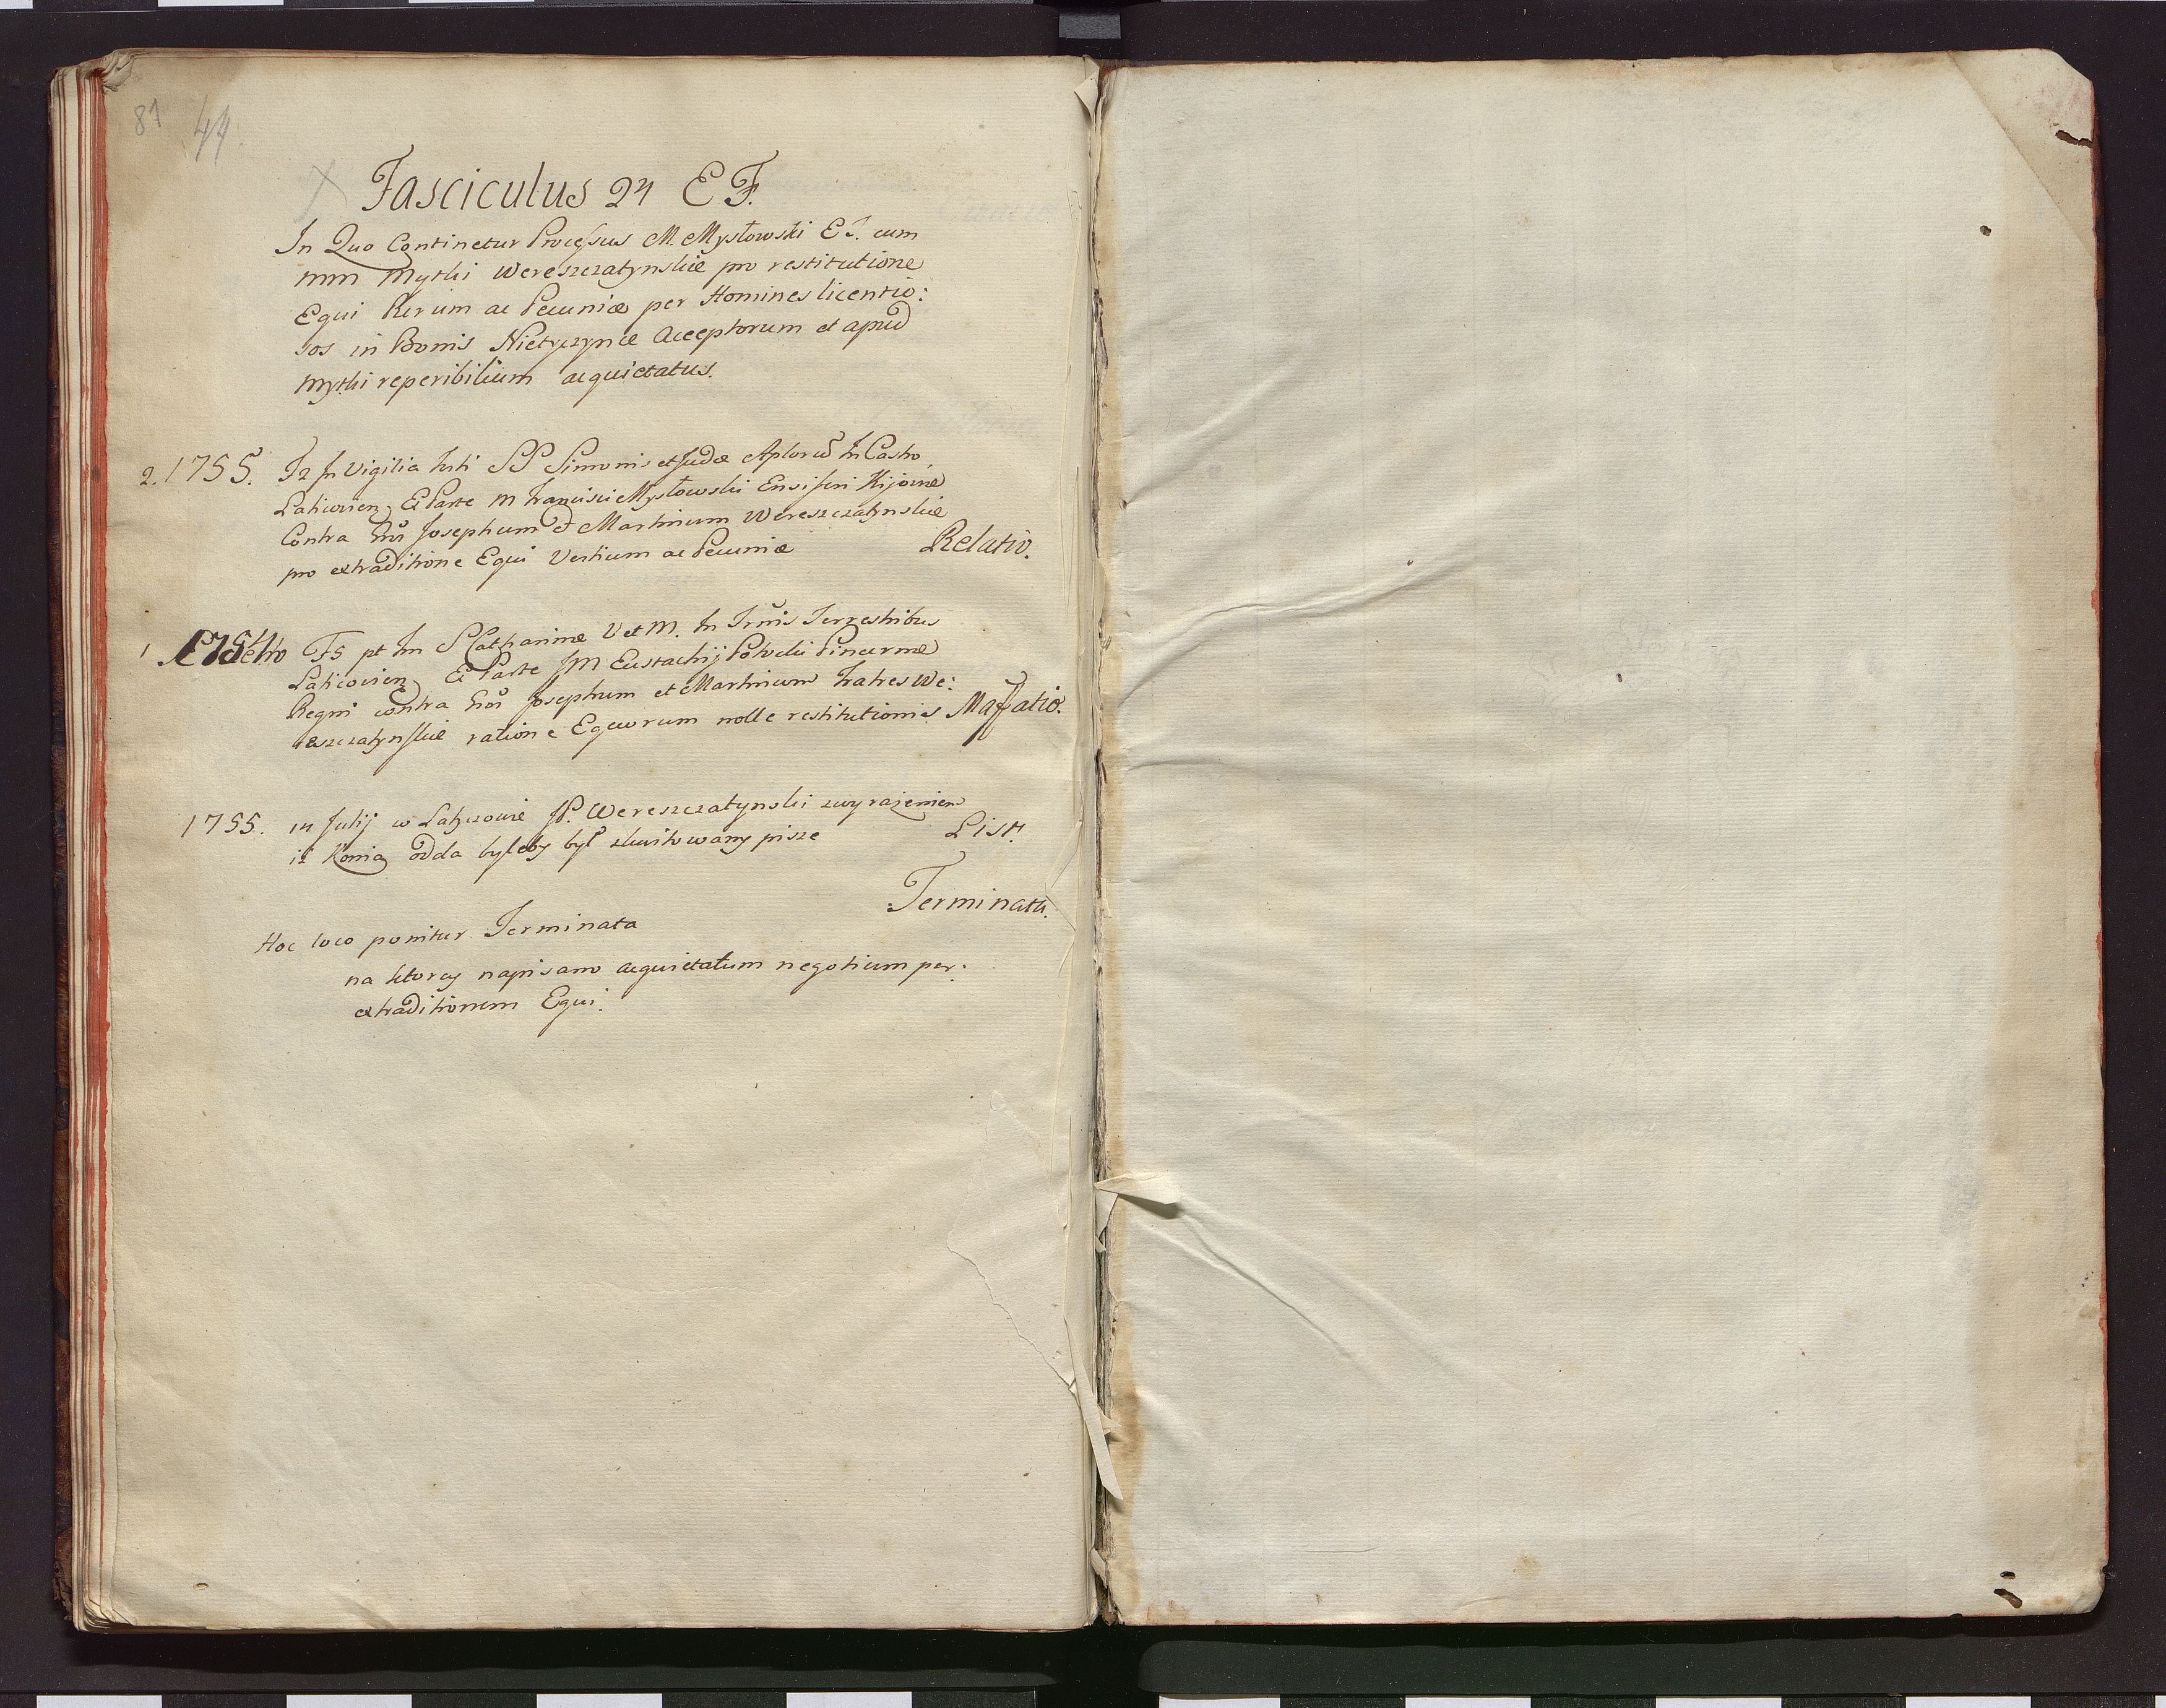 81 44
Fasciculus 24 E F.
In Quo Continetur Processus M. Mysłowski E J. cum
mm Mythi Wereszczatynskie pro restitutione
Equi Rerum ac Pecuniæ per Homines licentio:
sos in Bonis Nietyczynie Acceptorum et apud
Mythi reperibilium acquietatus.
2. 1755. In Vigilia festi SS Simonis et Judæ Aplorū In Castro
Laticovien Ex Parte M Francisci Mysłowski Ensiferi Kijoviæ
Contra Josephum et Martinum Wereszczatynskie
pro extraditione Equi Vestium ac Pecuniæ Relatio.
1 F5 pt fm S Catharinæ V et M. In Trmis Terrestribus
Laticovien Ex Parte JM Eustachij Potocki Pincernæ
Regni contra Josephum et Martinum Fratres We:
reszczatynskie ratione Equorum nolle restitutionis
1755. 14 Julij w Latyczowie JP. Wereszczatynski z wyrażeniem
iż Konia odda byleby był zkwitowany pisze List.
Terminata.
Hoc loco ponitur Terminata
na ktorey napisano acquietatum negotium per
extraditionem Equi.